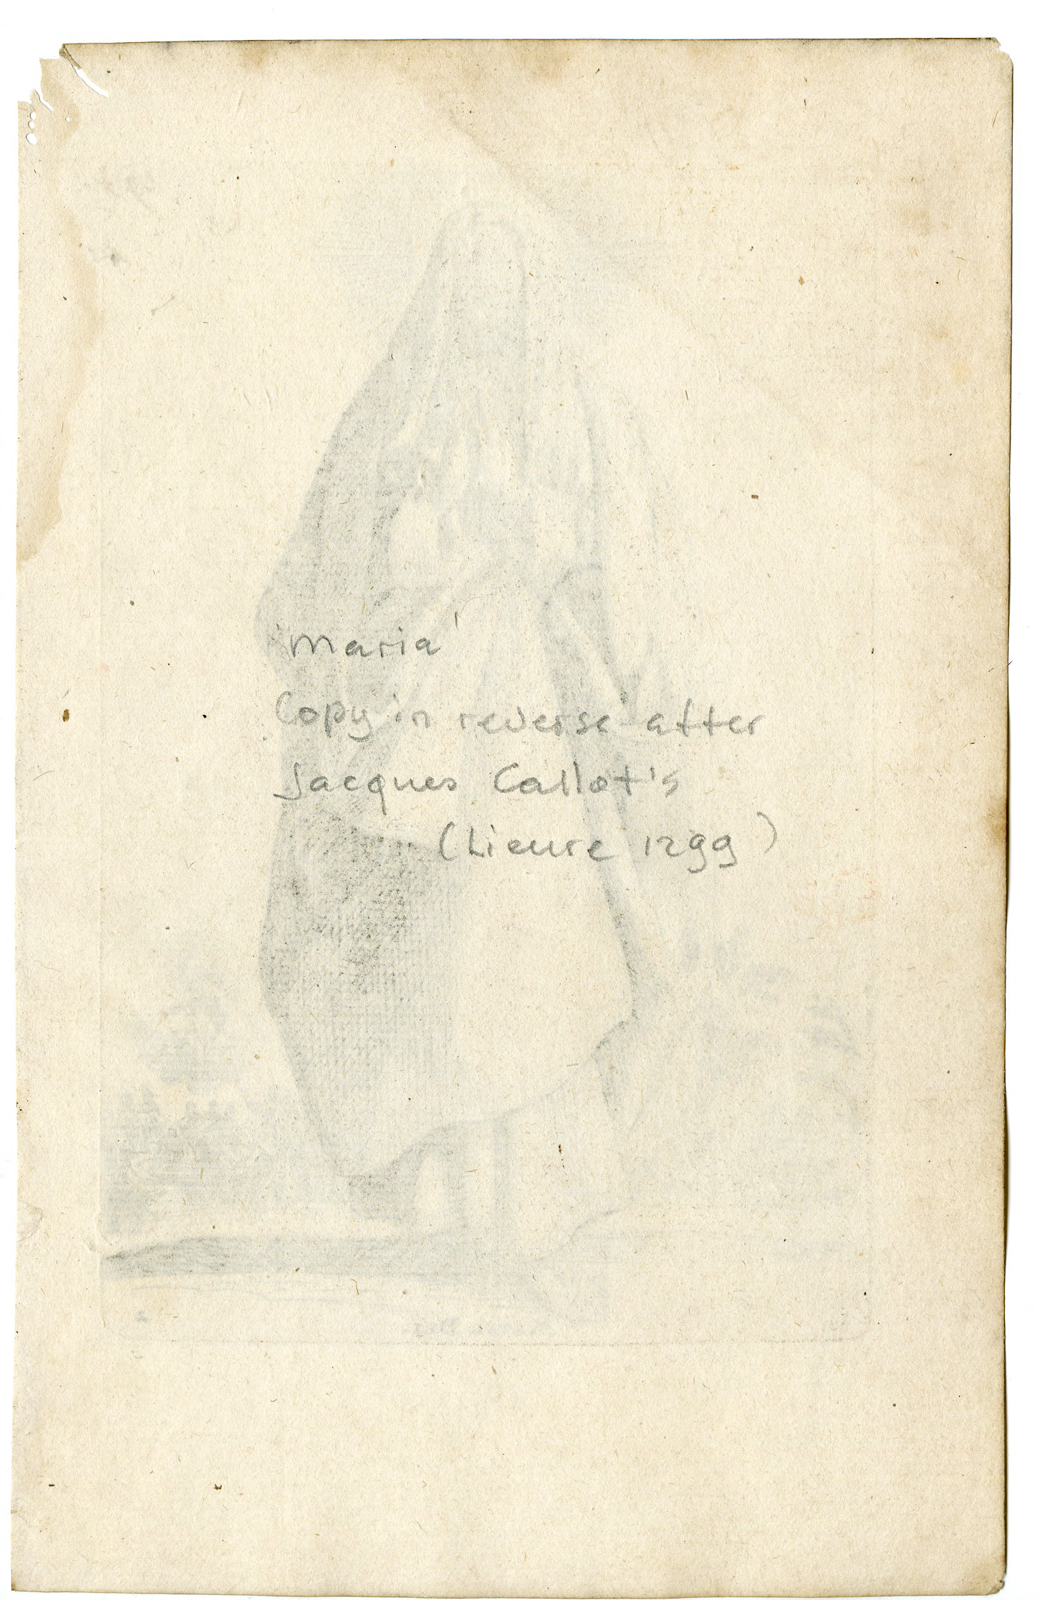 'Maria'
Copy in reverse after
Jacques Callot's
(Lieure 1299)